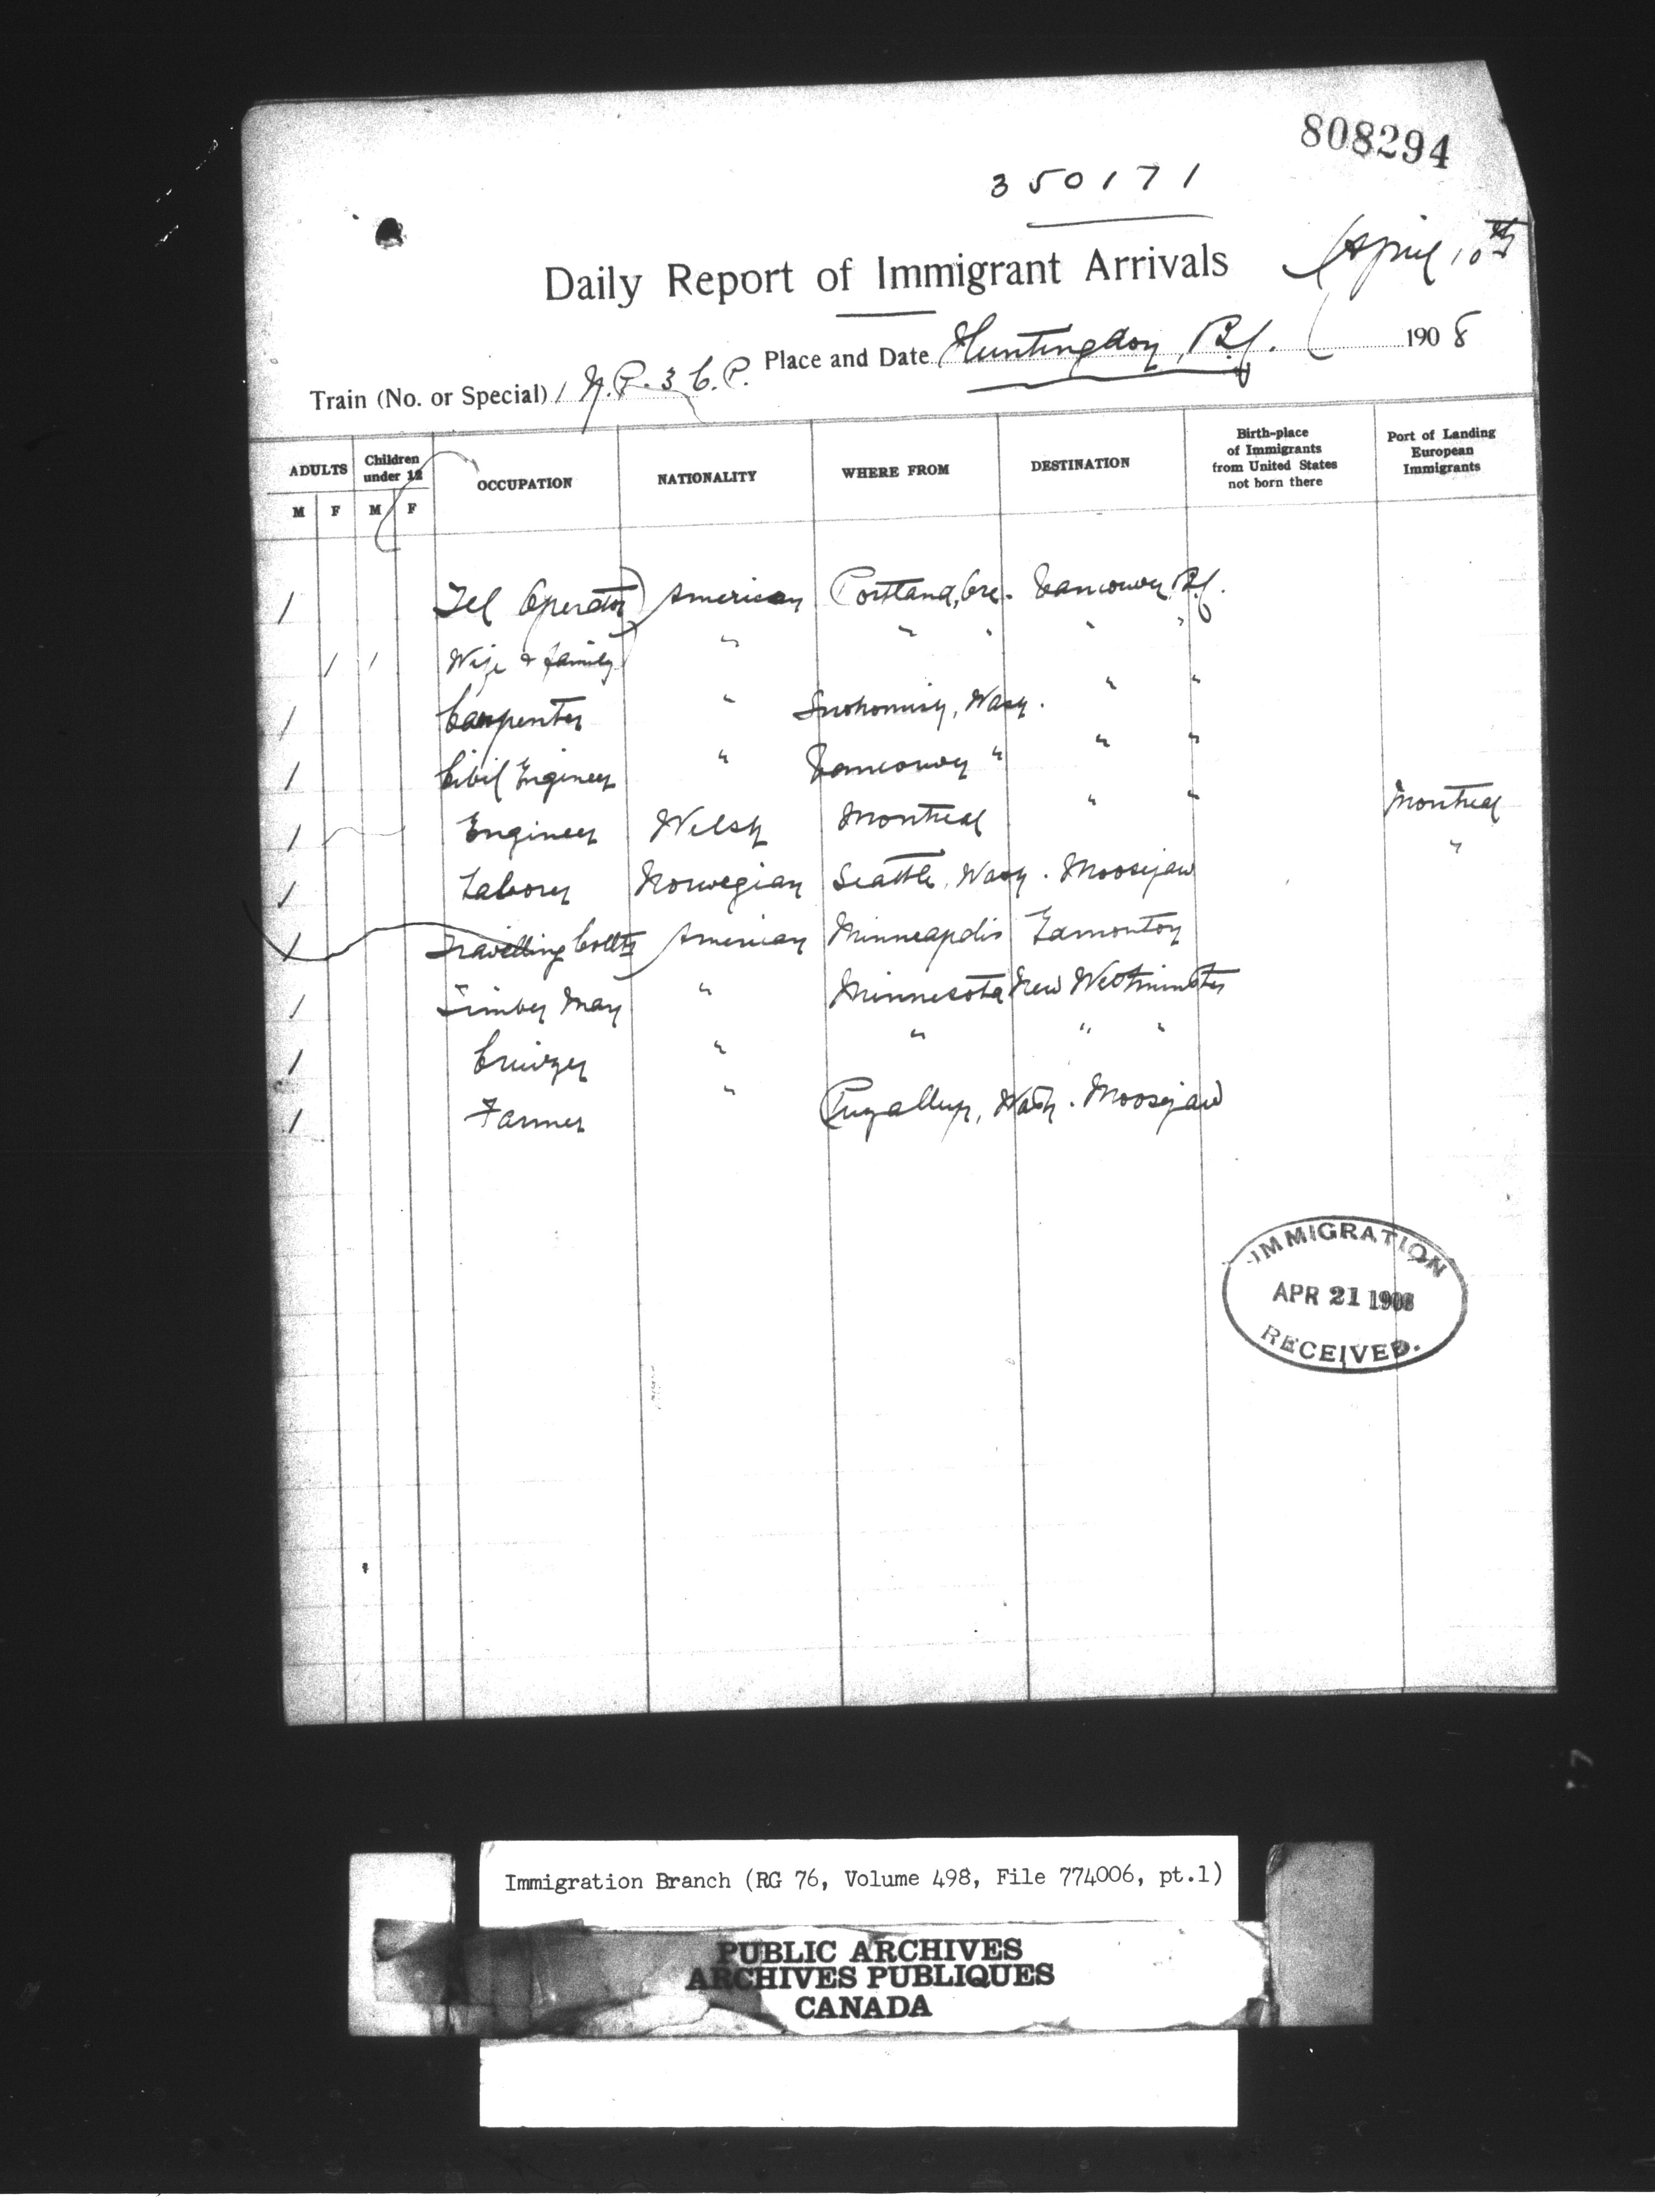 808294
350171
Daily Report of Immigrant Arrivals April 10th
Place and Date Huntingdon, B.C. 1908
Train (No. or Special) N.P. & C.P.
ADULTS Children under 12 OCCUPATION NATIONALITY WHERE FROM DESTINATION Birth-place of Immigrants from United States not born there Port of Landing European Immigrants
M F M F
1 Tel Operator American Portland, Ore. Vancouver B.C.
1 1 Wife & family " " " " "
1 Carpenter " Snohomish, Wash. " "
1 Civil Engineer " Vancouver " " "
1 Engineer Welsh Montreal " " Montreal
1 Laborer Norwegian Seattle, Wash. Moosejaw "
1 Travelling American Minneapolis Edmonton
1 Timber Man " Minnesota New Westminster
1 Cruizer " " " "
1 Farmer " Puyallup, Wash. Moosejaw
IMMIGRATION
APR 21 1908
RECEIVED.
Immigration Branch (RG 76, Volume 498, File 774006, pt.1)
PUBLIC ARCHIVES
ARCHIVES PUBLIQUES
CANADA